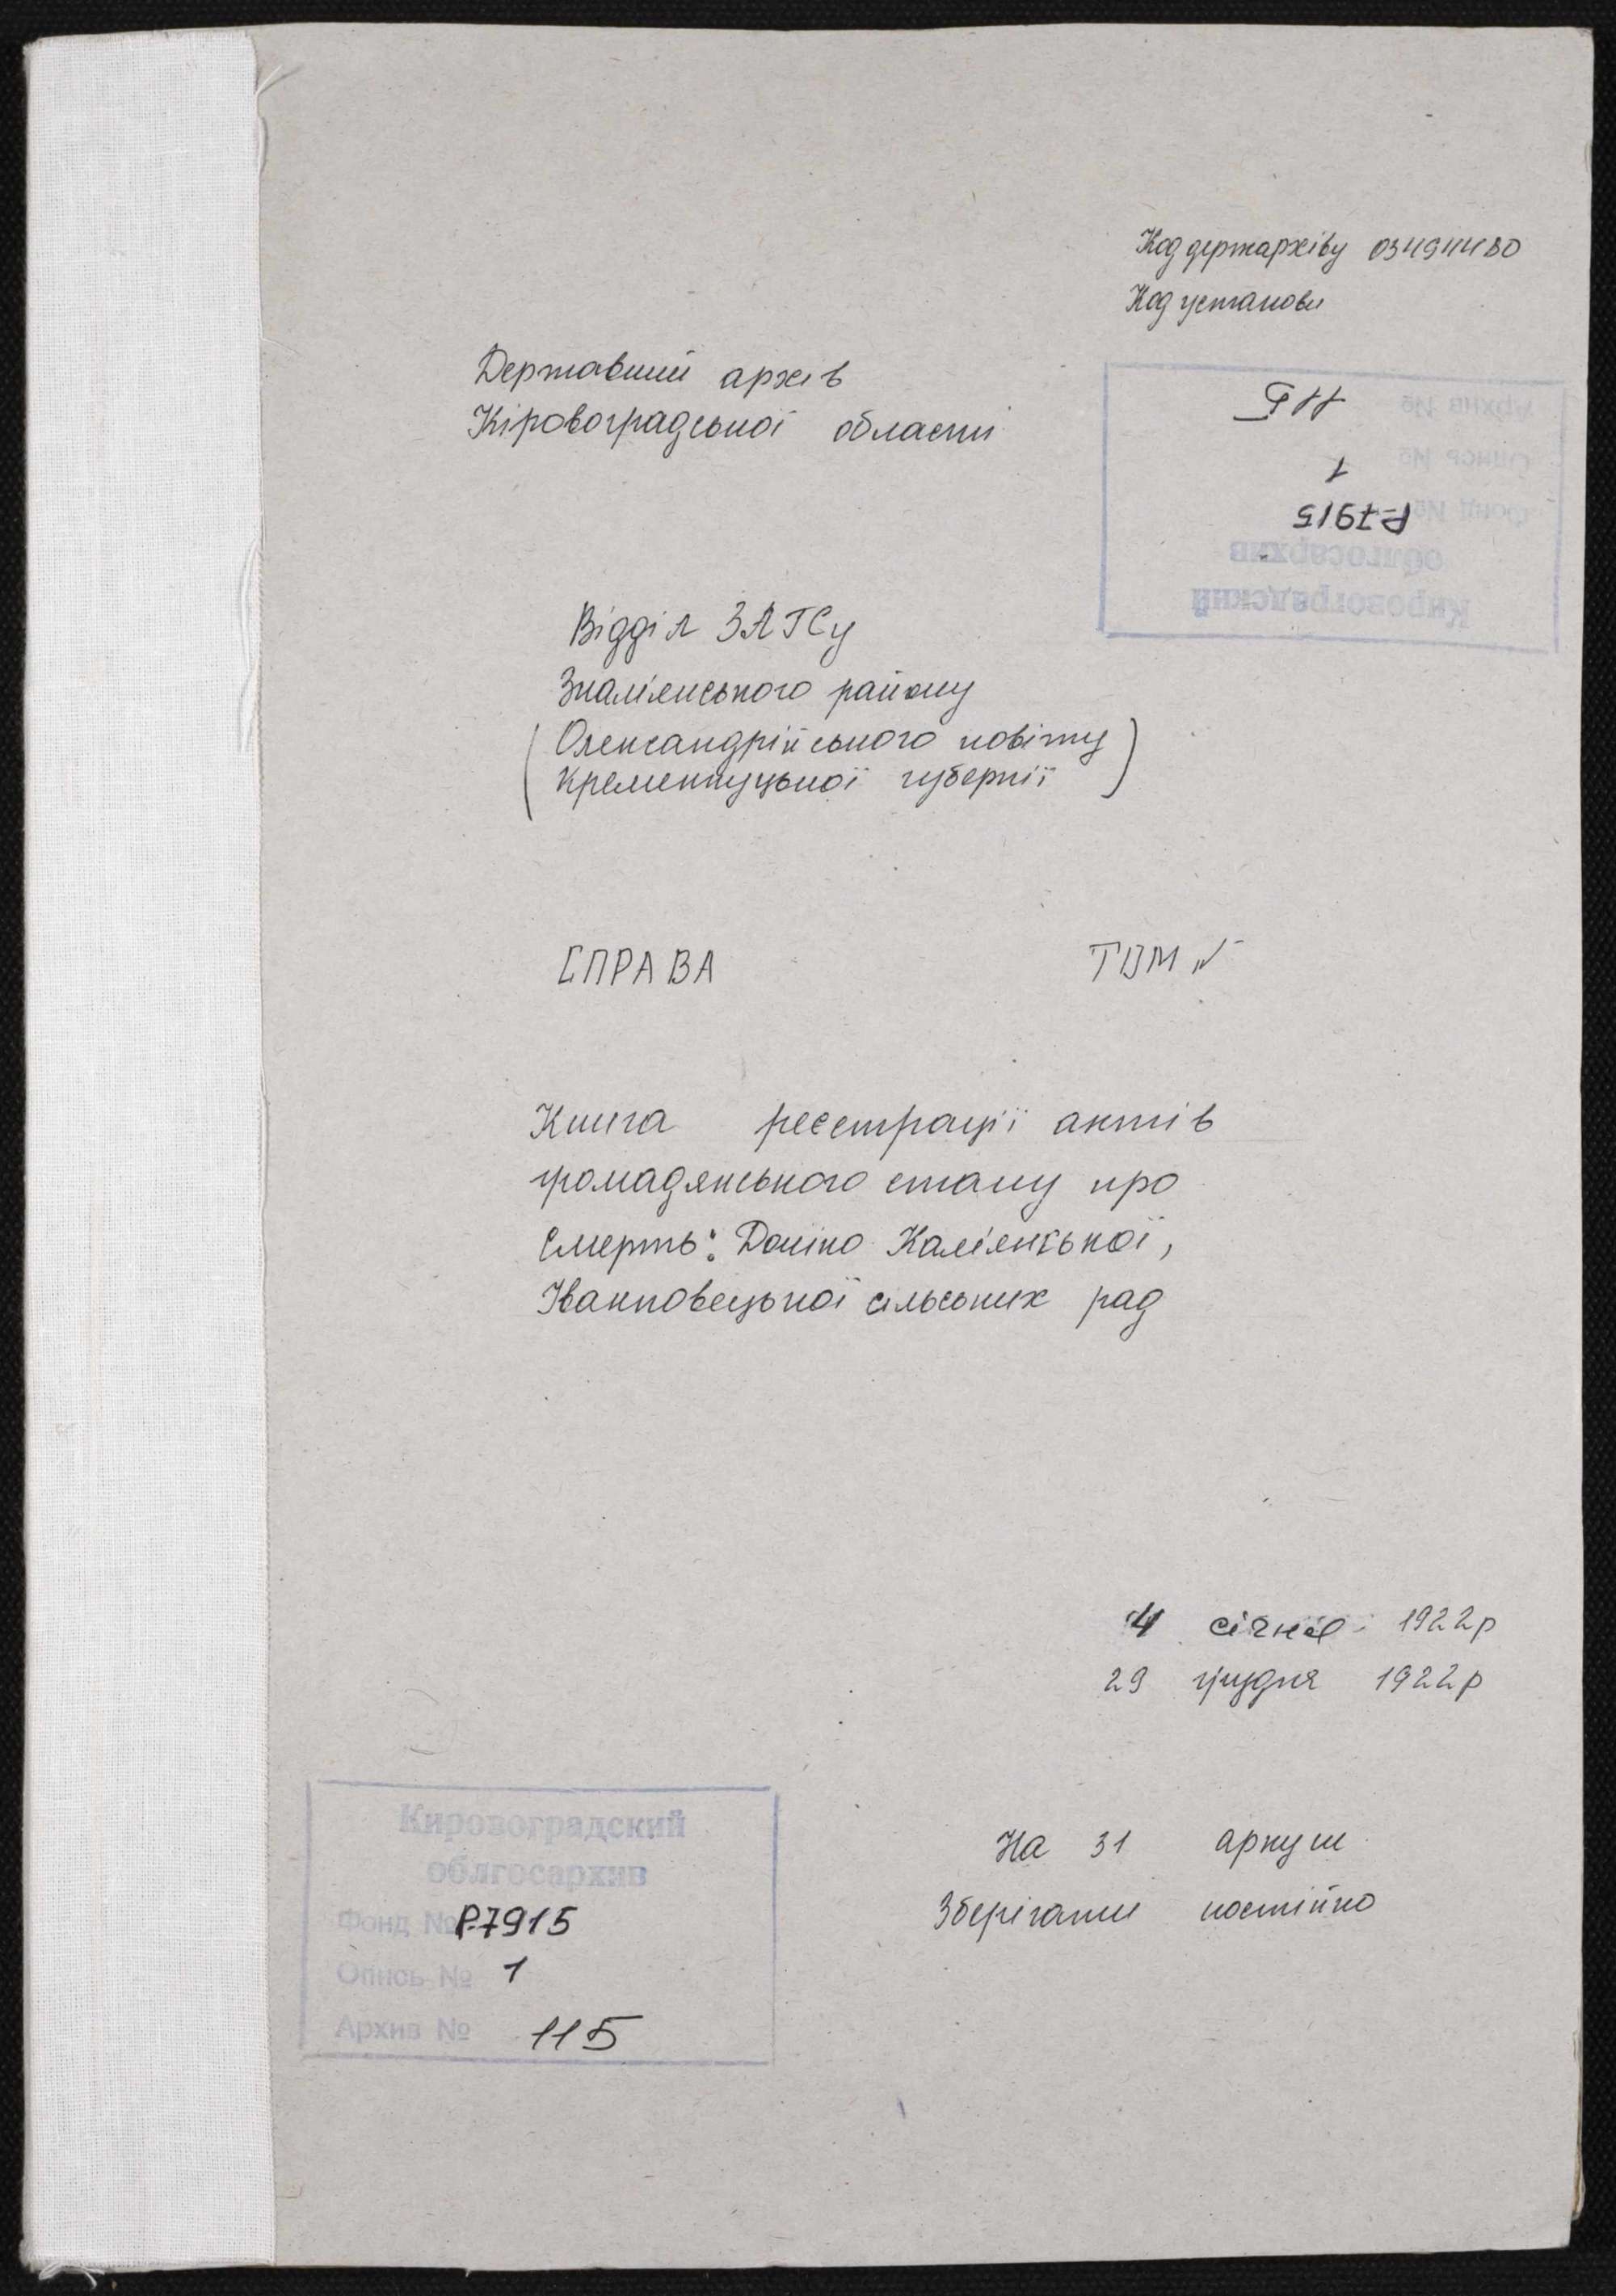 Код держархіву 03494480
Код установи
Державний архів
Кіровоградської області
Кировоградский
облгосархив
Фонд № Р-7915
Опись № 1
Архив № 115
Відділ ЗАГСу
Знам'янського району
(Олександрійського повіту
Кременчуцької губернії)
СПРАВА ТОМ №
Книга реєстрації актів
громадянського стану про
смерть: Доліно-Кам'янської,
Іванковецької сільських рад
4 січня 1922р
29 грудня 1922р
На 31 аркуш
Зберігати постійно
Кировоградский
облгосархив
Фонд № Р-7915
Опись № 1
Архив № 115